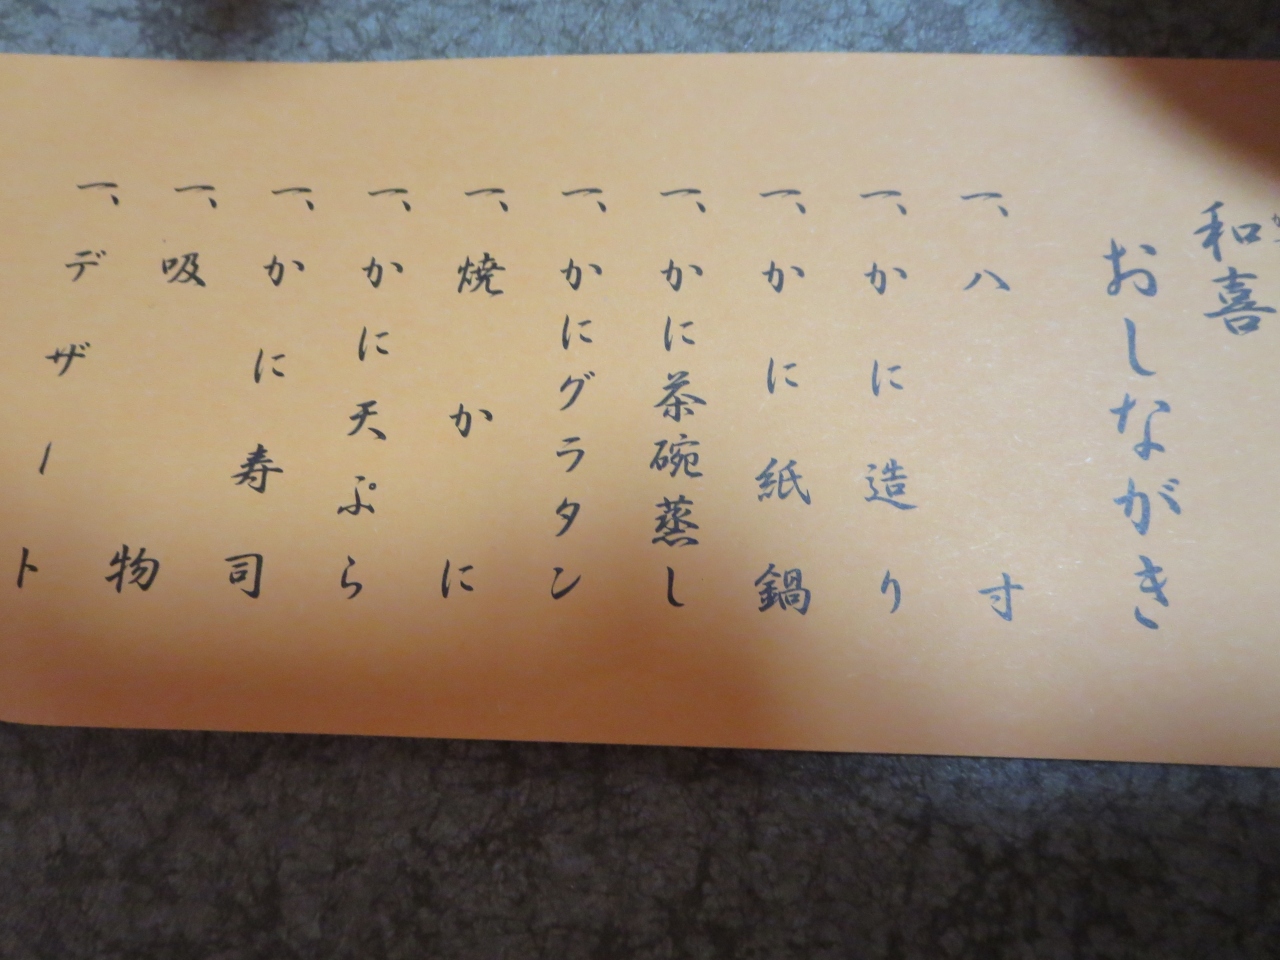 和喜
おしながき
一、八寸
一、かに造り
一、かに紙鍋
一、かに茶碗蒸し
一、かにグラタン
一、焼かに
一、かに天ぷら
一、かに寿司
一、吸物
一、デザート